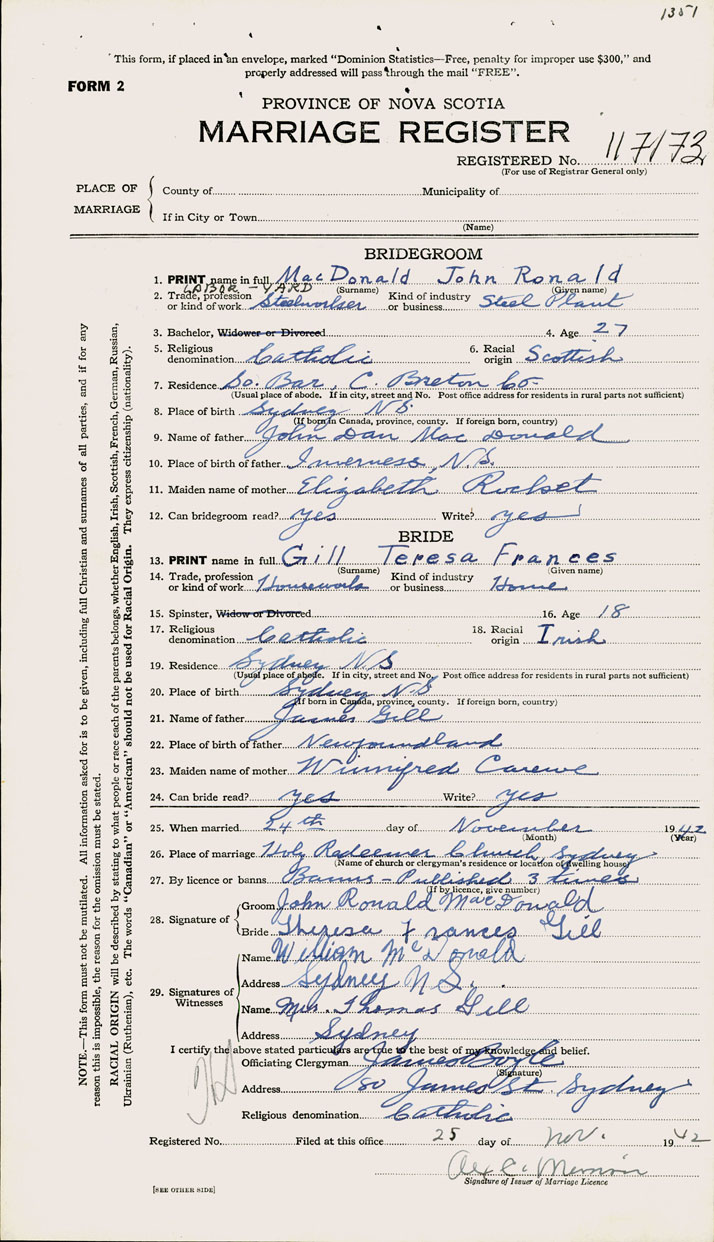 1351
This form, if placed in an envelope, marked "Dominion Statistics—Free, penalty for improper use $300," and
properly addressed will pass through the mail "FREE".
FORM 2
PROVINCE OF NOVA SCOTIA
MARRIAGE REGISTER
REGISTERED No. 117173
(For use of Registrar General only)
PLACE OF MARRIAGE
County of Municipality of
If in City or Town
(Name)
BRIDEGROOM
1. PRINT name in full MacDonald John Ronald
(Surname) (Given name)
LABOR - YARD
2. Trade, profession or kind of work Steelworker Kind of industry or business Steel Plant
3. Bachelor, Widower or Divorced 4. Age 27
5. Religious denomination Catholic 6. Racial origin Scottish
7. Residence So. Bar, C. Breton Co
(Usual place of abode. If in city, street and No. Post office address for residents in rural parts not sufficient)
8. Place of birth Sydney N S
(If born in Canada, province, county. If foreign born, country)
9. Name of father John Dan Mac Donald
10. Place of birth of father Inverness, N.S.
11. Maiden name of mother Elizabeth
12. Can bridegroom read? yes Write? yes
BRIDE
13. PRINT name in full Gill Teresa Frances
(Surname) (Given name)
14. Trade, profession or kind of work Housework Kind of industry or business Home
15. Spinster, Widow or Divorced 16. Age 18
17. Religious denomination Catholic 18. Racial origin Irish
19. Residence Sydney N S
(Usual place of abode. If in city, street and No. Post office address for residents in rural parts not sufficient)
20. Place of birth Sydney N S
(If born in Canada, province, county. If foreign born, country)
21. Name of father James Gill
22. Place of birth of father Newfoundland
23. Maiden name of mother Winnifred Carewe
24. Can bride read? yes Write? yes
25. When married 24th day of November 1942
(Month) (Year)
26. Place of marriage Holy Redeemer Church, Sydney
(Name of church or clergyman's residence or location of dwelling house)
27. By licence or banns Banns - Published 3 times
(If by licence, give number)
28. Signature of
Groom John Ronald MacDonald
Bride Theresa Frances Gill
29. Signatures of Witnesses
Name William McDonald
Address Sydney N S.
Name Mrs. Thomas Gill
Address Sydney
I certify the above stated particulars are true to the best of my knowledge and belief.
Officiating Clergyman James Boyle
(Signature)
Address 80 James St Sydney
Religious denomination Catholic
Registered No. Filed at this office 25 day of Nov. 1942
Signature of Issuer of Marriage Licence
[SEE OTHER SIDE]
NOTE.—This form must not be mutilated. All information asked for is to be given, including full Christian and surnames of all parties, and if for any
reason this is impossible, the reason for the omission must be stated.
RACIAL ORIGIN will be described by stating to what people or race each of the parents belongs, whether English, Irish, Scottish, French, German, Russian,
Ukrainian (Ruthenian), etc. The words "Canadian" or "American" should not be used for Racial Origin. They express citizenship (nationality).